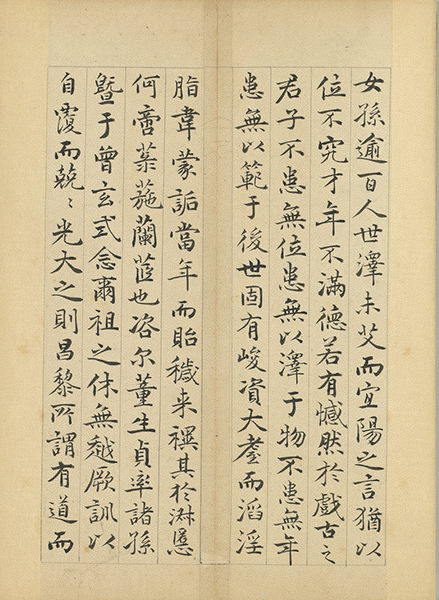 女孫逾百人世澤未艾而宜陽之言猶以
位不究才年不滿德若有憾然於戲古之
君子不患無位患無以澤于物不患無年
患無以範于後世固有峻資大耋而滔淫
脂韋蒙詬當年而貽穢来禩其於淑慝
何啻菉葹蘭茝也咨尔董生貞率諸孫
曁于曾玄式念爾祖之休無越厥訓以
自覆而兢〻光大之則昌黎所謂有道而